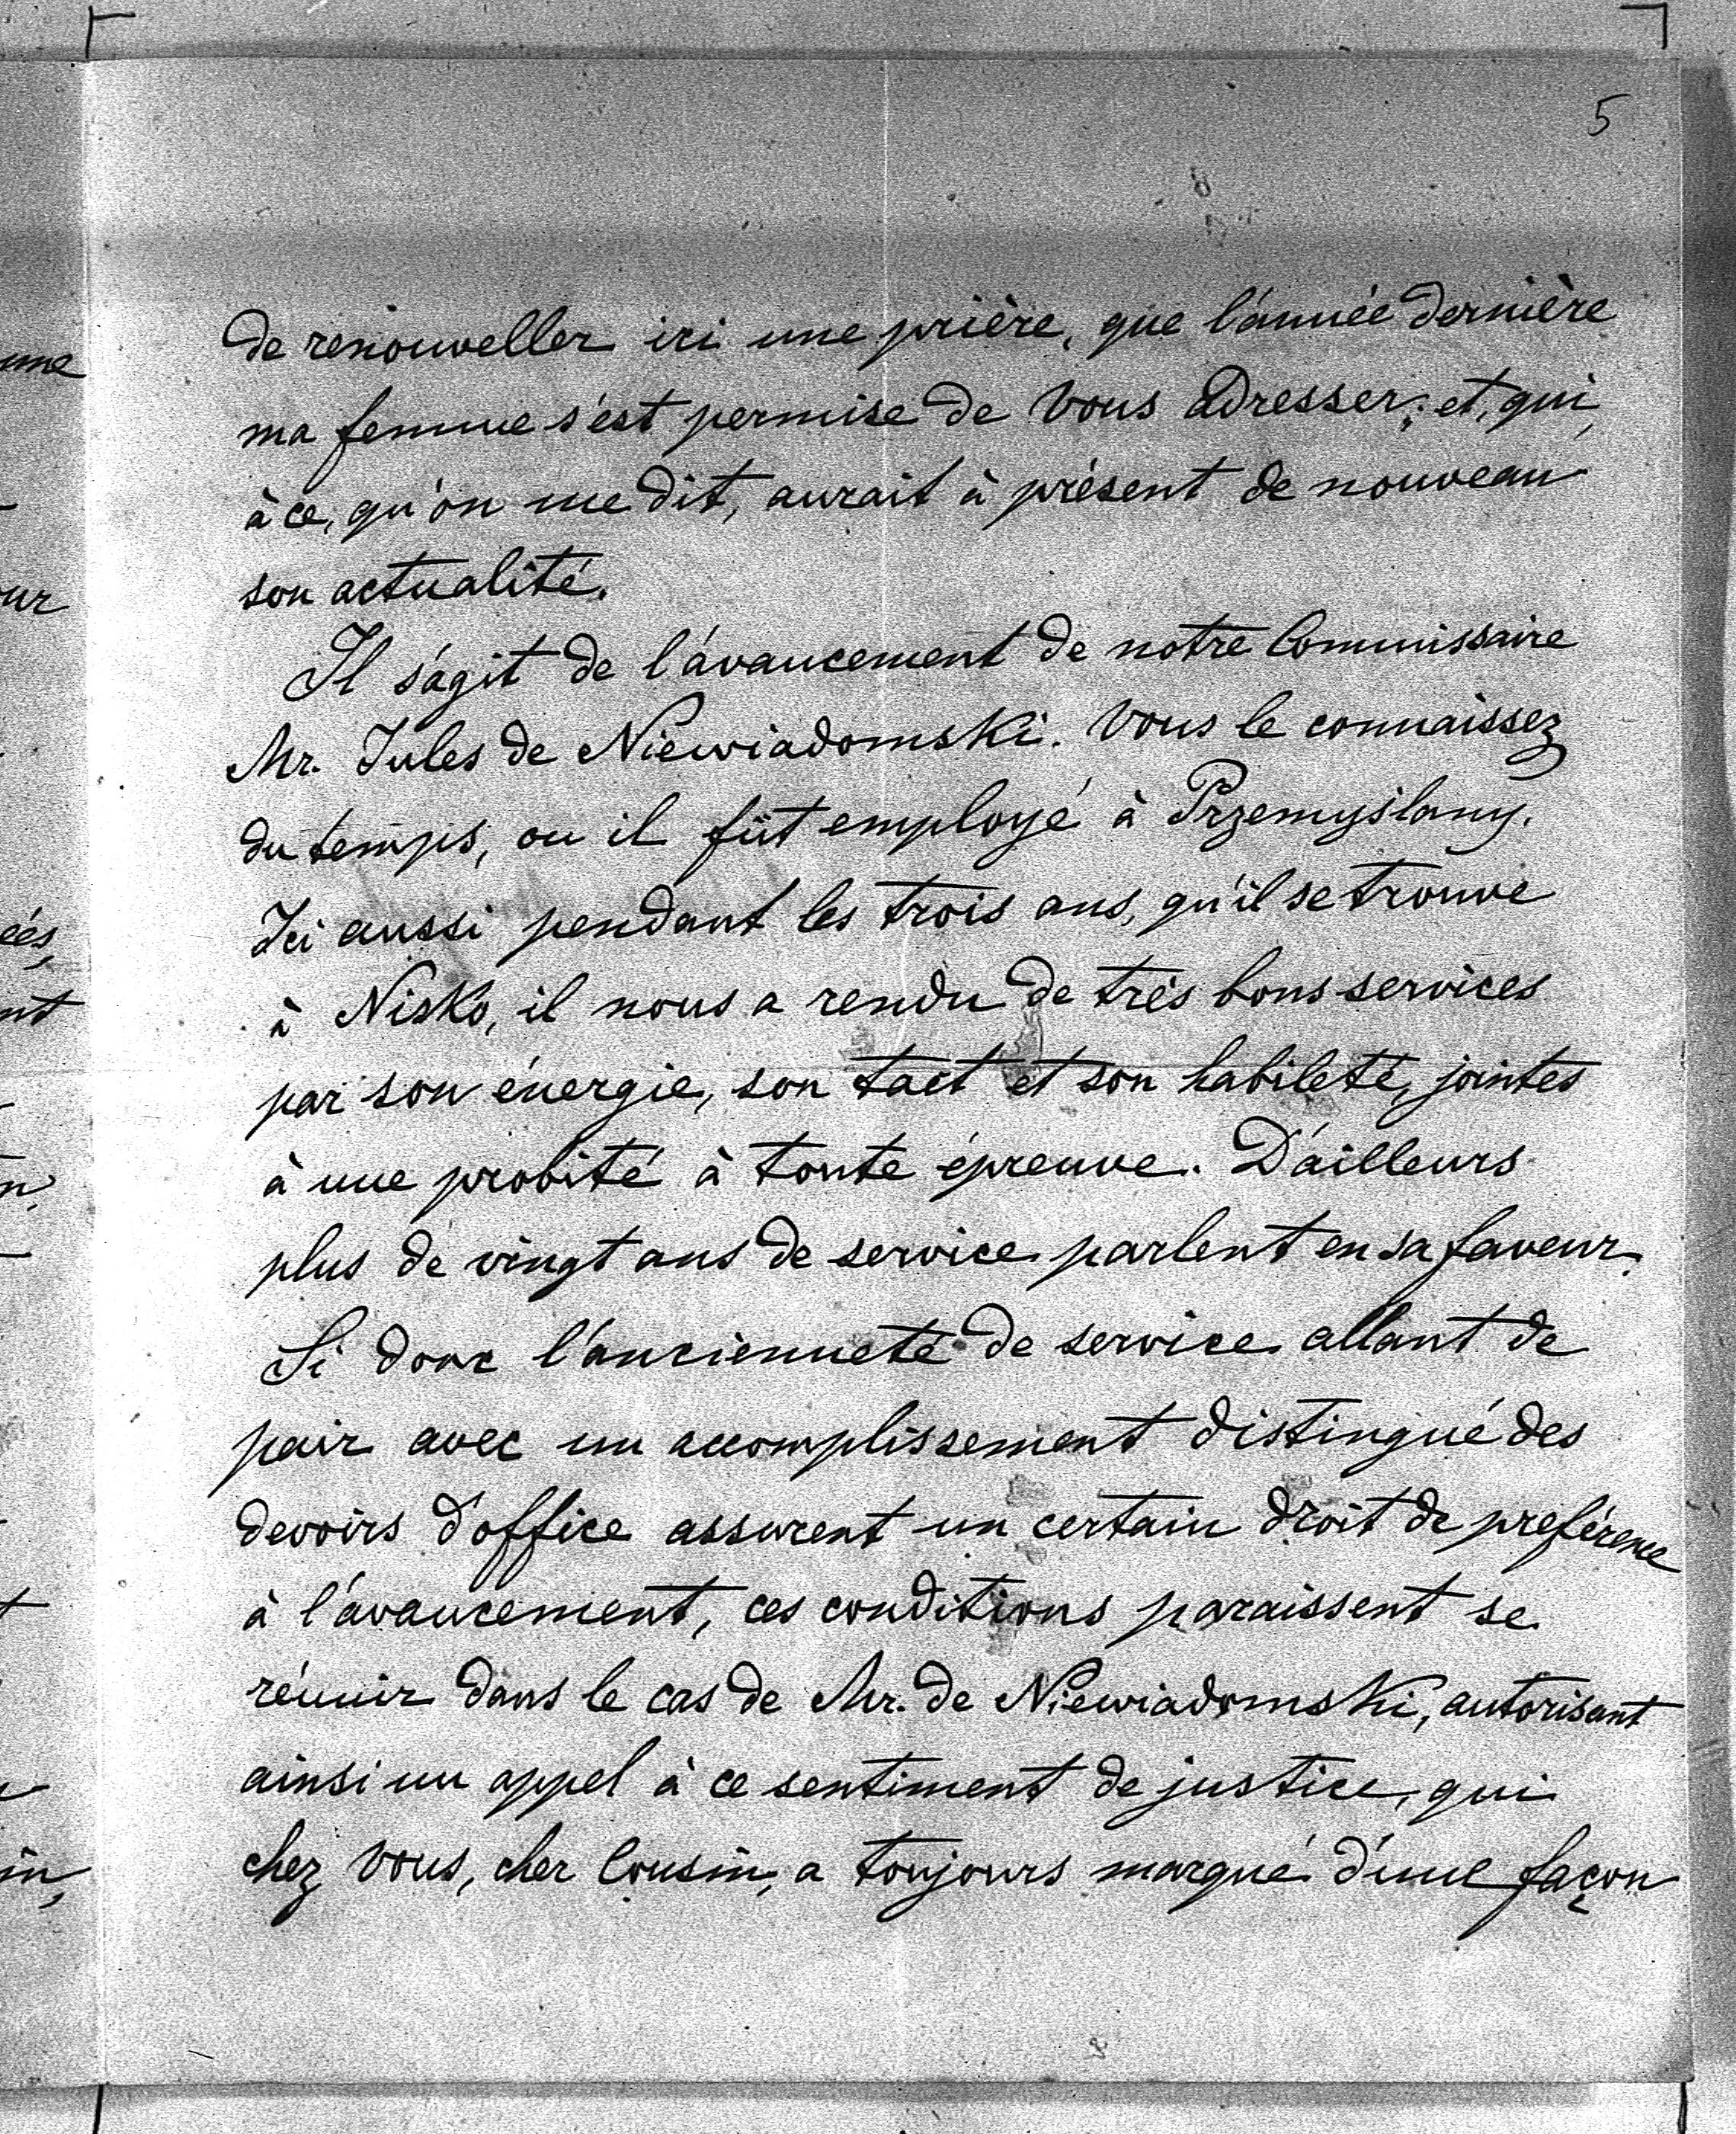 5
de renouveller ici une prière, que l'année dernière
ma femme s'est permise de Vous adresser; et, qui,
à ce, qu'on me dit, aurait à présent de nouveau
son actualité.
Il s'agit de l'avancement de notre Commissaire
Mr. Jules de Niewiadomski. Vous le connaissez
du temps, ou il fût employé à Przemyślany.
Ici aussi pendant les trois ans, qu'il se trouve
à Nisko, il nous a rendu de très bons services
par son énergie, son tact et son habileté, jointes
à une probité à toute épreuve. D'ailleurs
plus de vingt ans de service parlent en sa faveur.
Si donc l'ancienneté de service allant de
pair avec un accomplissement distingué des
devoirs d'office assurent un certain droit de preférence
à l'avancement, ces conditions paraissent se
réunir dans le cas de Mr. de Niewiadomski, autorisant
ainsi un appel à ce sentiment de justice, qui
chez Vous, cher Cousin, a toujours marqué d'une façon